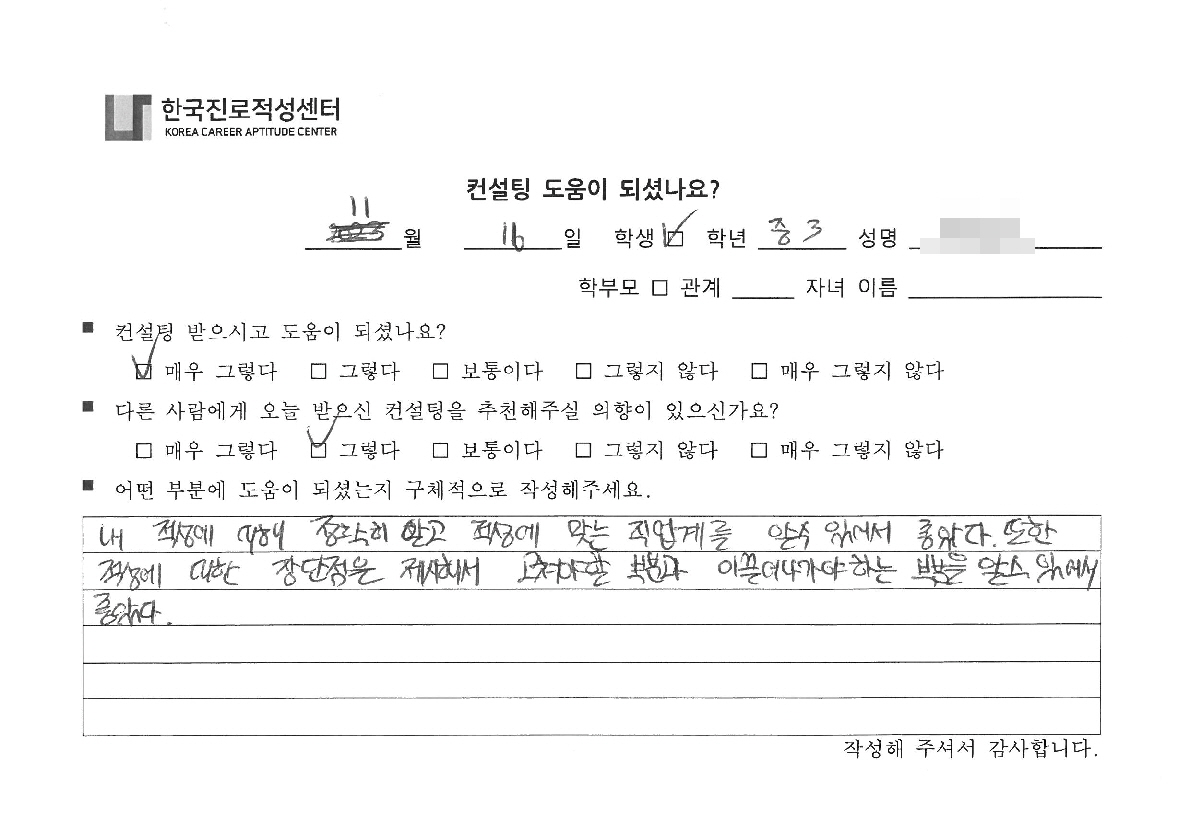 한국진로적성센터
KOREA CAREER APTITUDE CENTER
컨설팅 도움이 되셨나요?
11월 16일 학생 ☑ 학년 중3 성명
학부모 □ 관계 자녀 이름
■ 컨설팅 받으시고 도움이 되셨나요?
☑ 매우 그렇다 □ 그렇다 □ 보통이다 □ 그렇지 않다 □ 매우 그렇지 않다
■ 다른 사람에게 오늘 받으신 컨설팅을 추천해주실 의향이 있으신가요?
□ 매우 그렇다 ☑ 그렇다 □ 보통이다 □ 그렇지 않다 □ 매우 그렇지 않다
■ 어떤 부분에 도움이 되셨는지 구체적으로 작성해주세요.
내 적성에 대해 정확히 알고 적성에 맞는 직업계를 알수 있어서 좋았다. 또한
적성에 대한 장단점을 제시해서 고쳐야할 부분과 이끌어나가야하는 부분을 알수 있어서
좋았다.
작성해 주셔서 감사합니다.